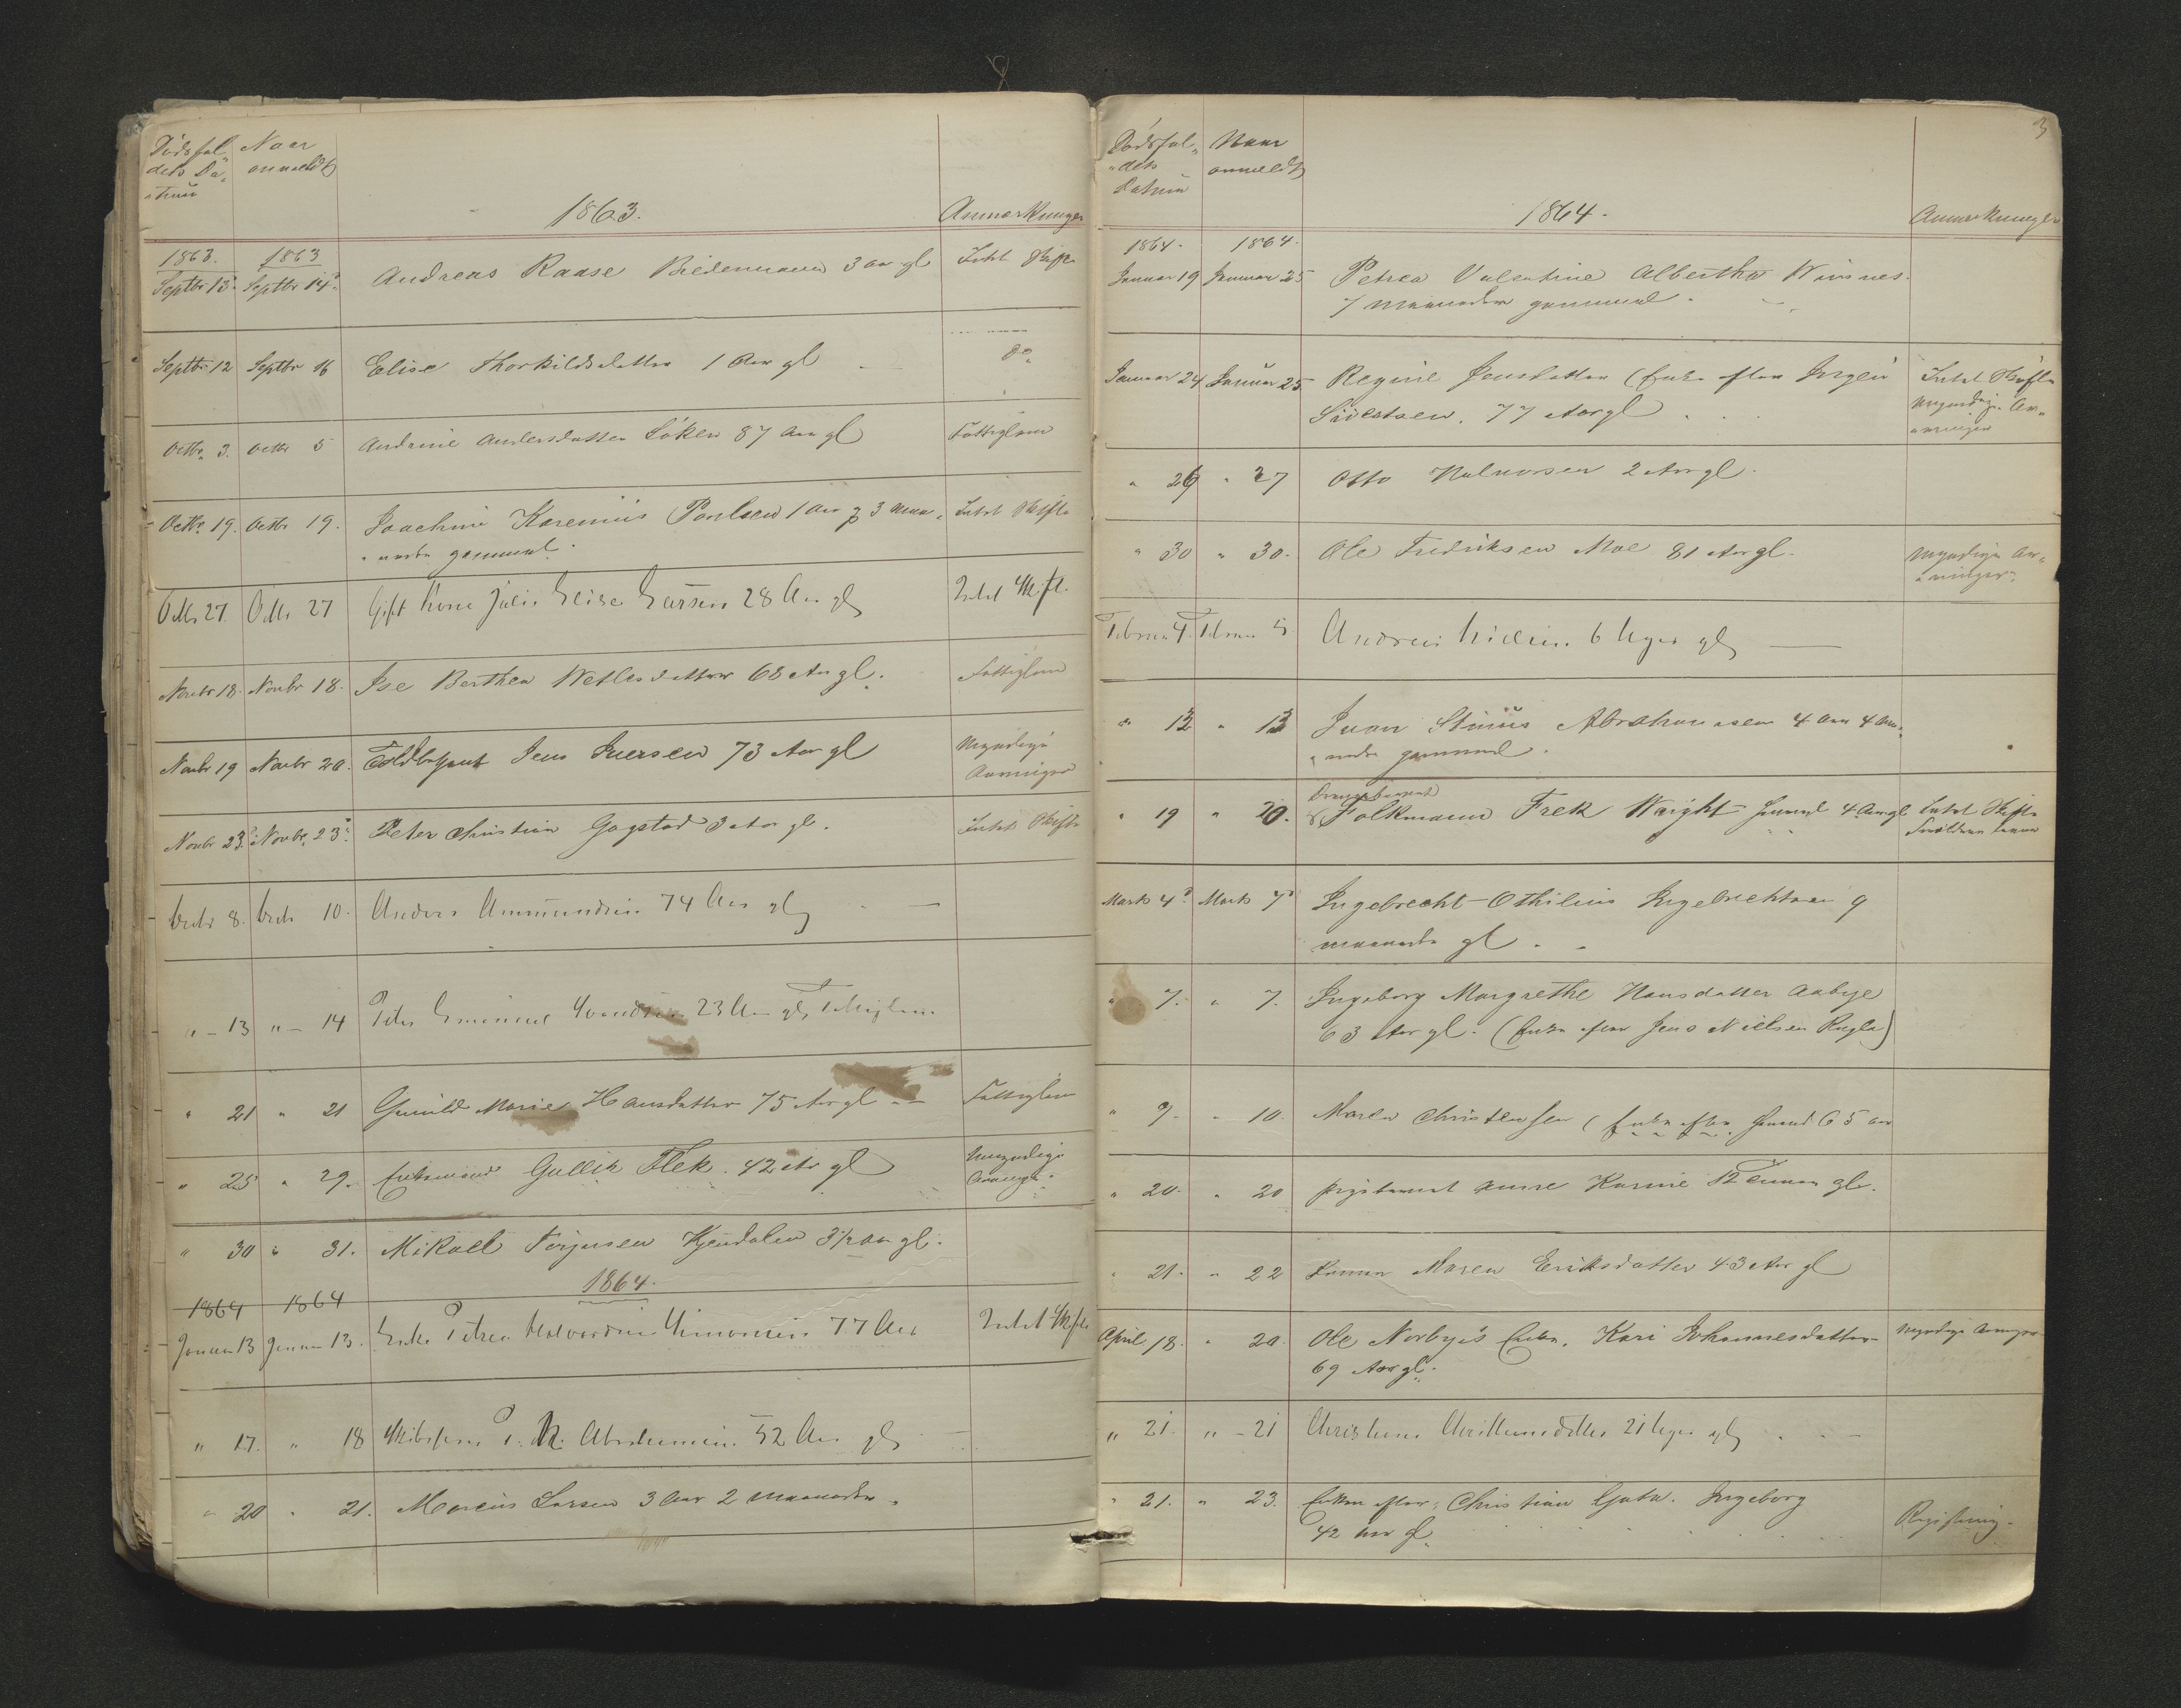 Dødsfal„ Naar
dets Da„ anmeldt
„tum
1863. Anmærkninger
1863. 1863
Septbr 13d Septbr 14d Andreas Raase Biedermann 3 aar gl Intet Skifte
Septbr 12 Septbr 16 Elise Thorkildsdatter 1 Aar gl do
Octbr 3. Octbr 5 Andrine Andersdatter 87 Aar gl Fattiglem
Octbr 19. Octbr 19. Joachim Karenius Paulsen 1 Aar 3 Maa„ Intet Skifte
„neder gammel
Octbr 27. Octbr 27 Gift Kone Julie Elise Larsen 28 Aar gl Intet Skifte.
Novbr 18. Novbr 18. Ise Berthea Wetlesdatter 68 Aar gl. Fattiglem
Novbr 19 Novbr 20. Toldbetjent Jens Iversen 73 Aar gl Myndige
Arvinger
Novbr 23d. Novbr. 23d. Peter Christian Gogstad 3 Aar gl. Intet Skifte
Decbr 8. Decbr 10. Anders Ammundsen 74 Aar gl
" – 13 " – 14 Peter 23 Aar gl, Fattiglem
" 21 " 21 Gunild Marie Hansdatter 75 Aar gl Fattiglem
" 25 " 29. Enkemand Gullik Flek. 42 Aar gl Umyndige
Arvinger.
" 30 " 31. Mikael Terjesen 3½ Aar gl.
1864.
1864 1864
Januar 13 Januar 13. Enke Petrea Halvorsen Simonsen 77 Aar Intet Skifte
" 17. " 18 Skibsfører Abrahamsen 52 Aar gl
" 20 " 21. Marius Larsen 3 Aar 2 Maaneder.
3
Dødsfal„ Naar
„dets anmeldt
Datum
1864. Anmærkninger
1864. 1864.
Januar 19 Januar 25 Petrea Valentine Albertha
7 Maaneder gammel.
Januar 24 Januar 25 Regine Jensdatter (Enke efter Jørgen Intet Skifte
77 Aar gl Myndige Ar„
„vinger
" 26 " 27 Otto Halvorsen 2 Aar gl.
" 30 " 30. Ole Fredriksen Moe 81 Aar gl. Myndige Ar„
„vinger.
Februar 4. Februar 5. Andreas Nielsen. 6 Uger gl
" 13 " 13 Ivar Stinius Abrahamsen 4 Aar 4 Maa„
„neder gammel.
" 19 " 20. Folkmann Frek Wright 4 Aar gl Intet Skifte
Forældrene leve
Marts 4d Marts 7d Ingebrecht Othilius Ingebrechtsen 9
maaneder gl.
" 7. " 7. Ingeborg Margrethe Hansdatter Aabye
63 Aar gl. (Enke efter Jens Nielsen Rugla)
" 9. " 10. Maren Christensen (Enke efter 65 Aar
" 20. " 20 Karine 12 gl.
" 21. " 22 Maren Eriksdatter 43 Aar gl
April 18. " 20. Ole Norbye's Enke. Kari Johannesdatter Myndige Arvinger
69 Aar gl.
" 21. " – 21 21 Uger gl
" 21. " 23. Enken efter Christian Ingeborg
42 Aar gl. Registrering.